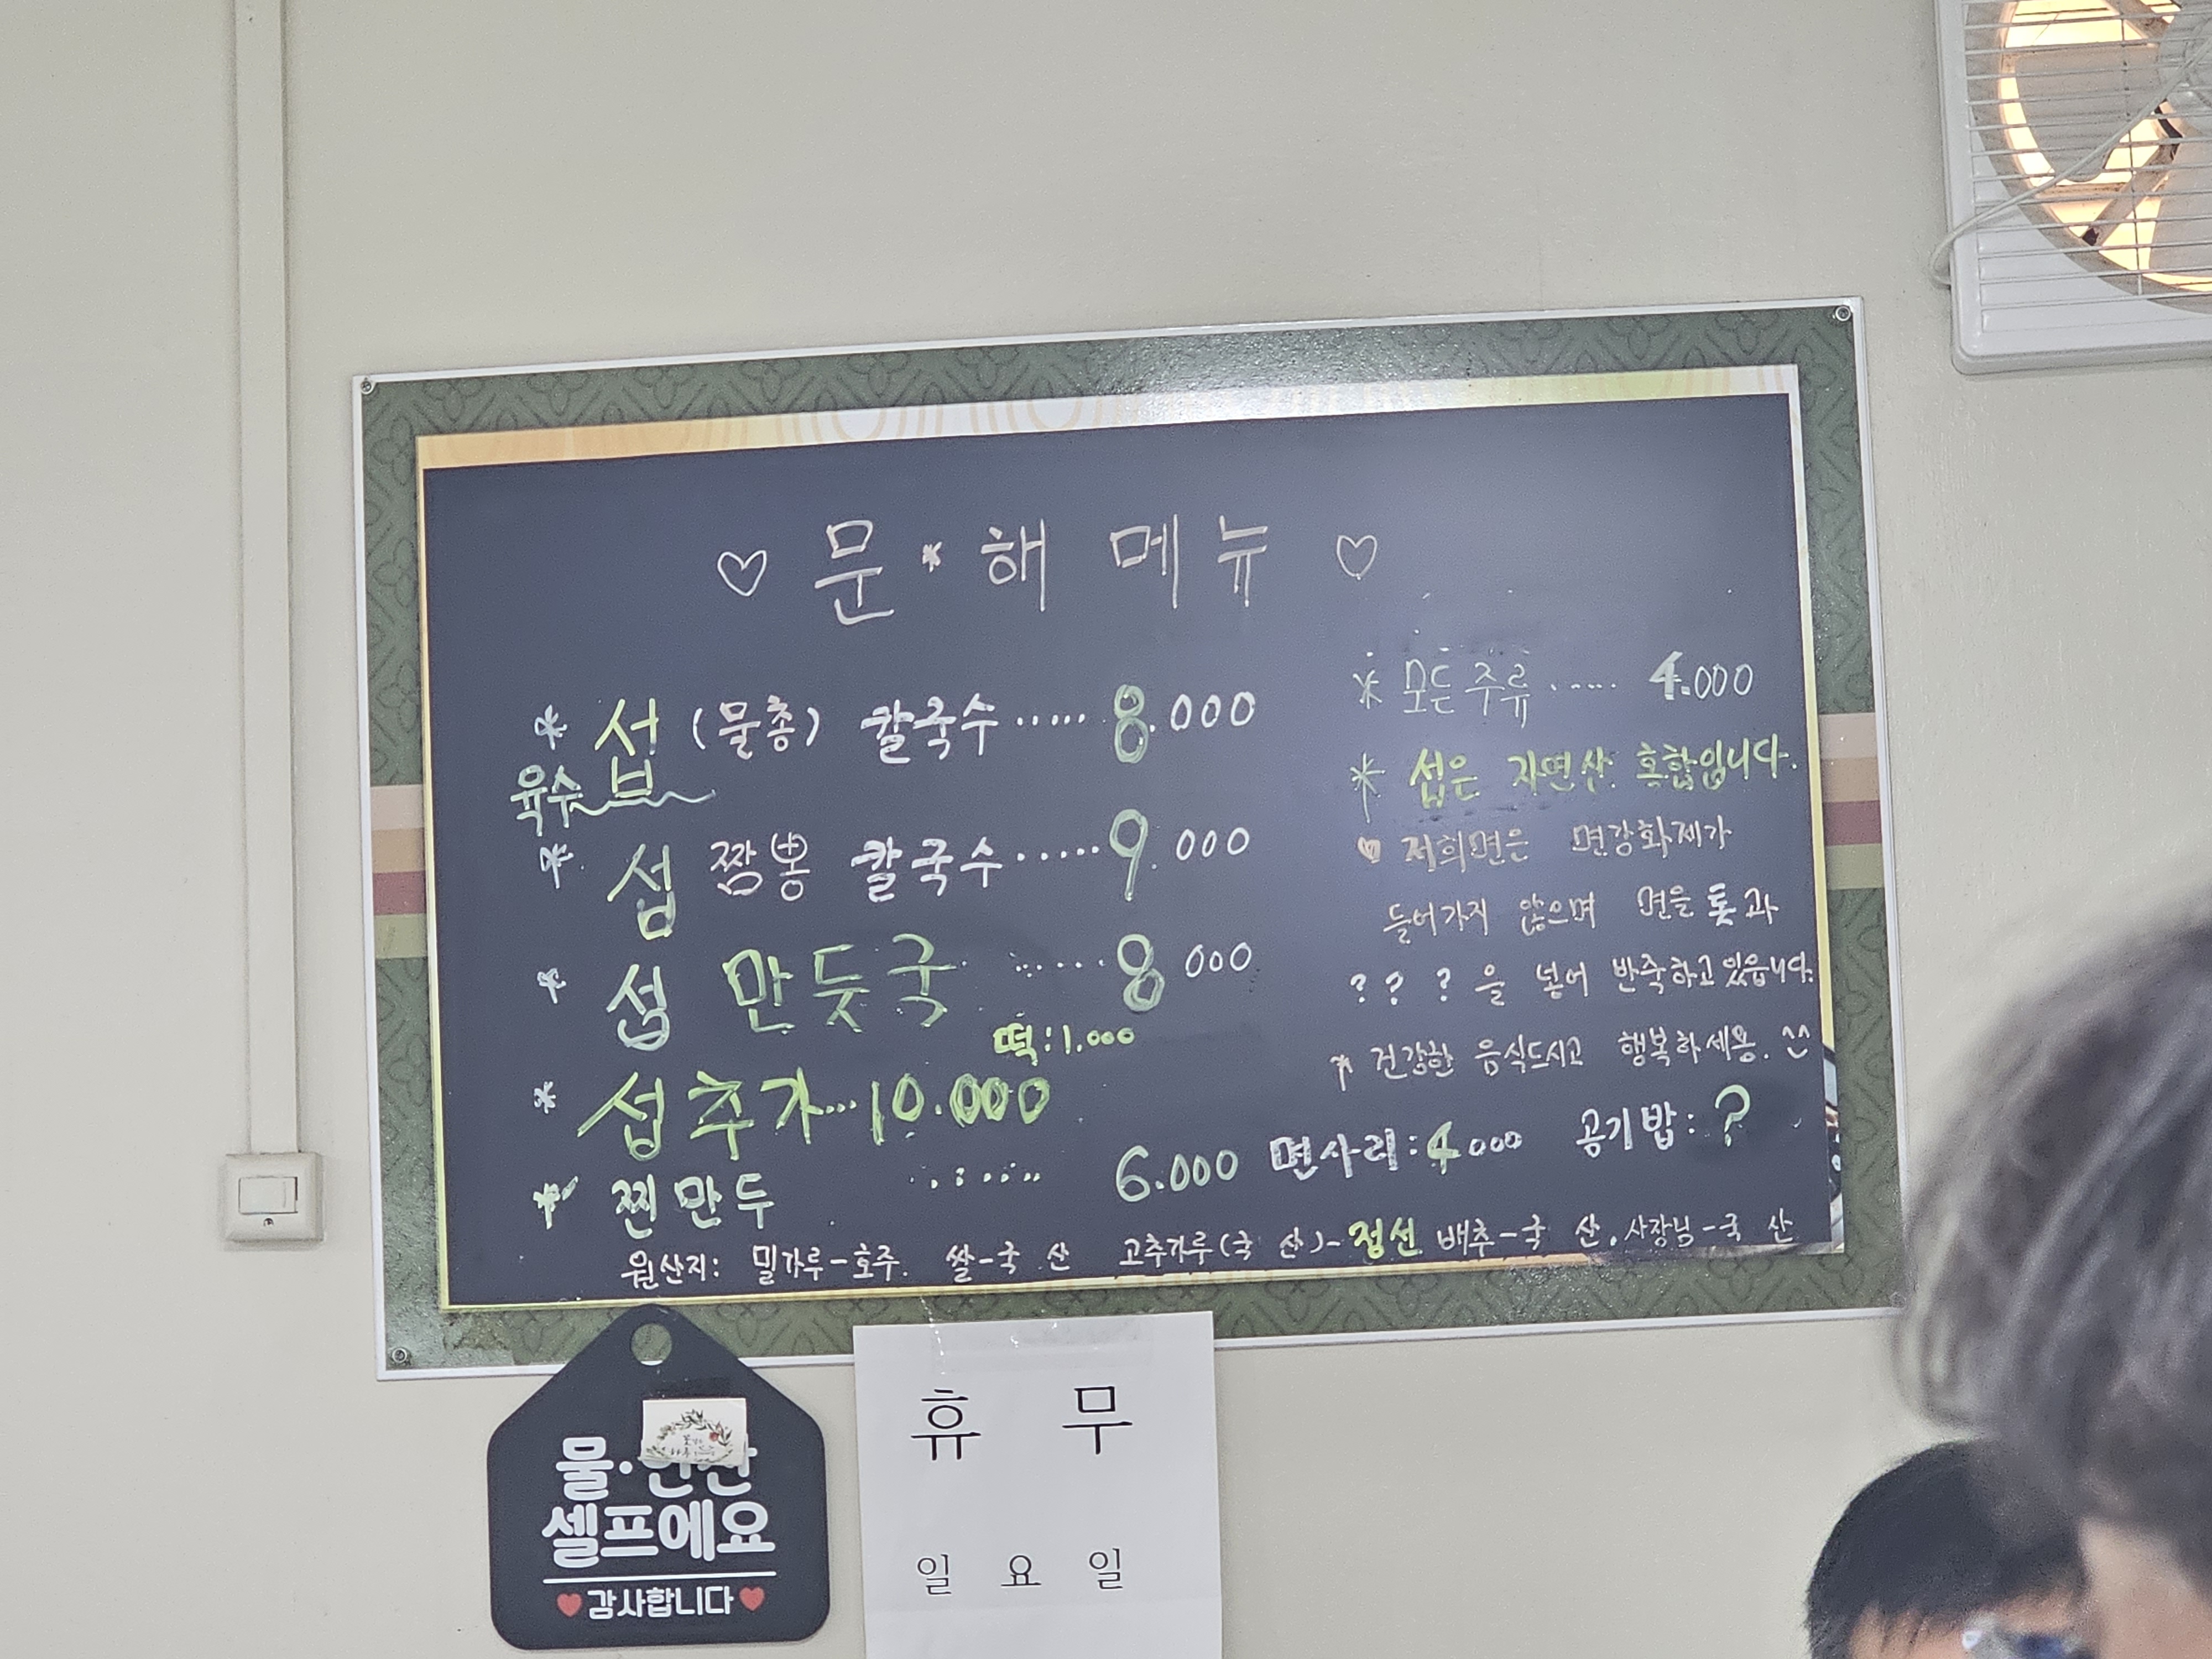 ♡ 문 * 해 메뉴 ♡
* 섭 (물총) 칼국수 ····· 8.000
육수
* 섭 짬뽕 칼국수 ····· 9.000
* 섭 만둣국 ····· 8 000
떡:1.000
* 섭추가 ··· 10.000
* 찐만두 ······ 6.000 면사리:4000 공기밥:?
* 모든 주류 ····· 4.000
* 섭은 자연산 홍합입니다.
♥ 저희면은 면강화제가
들어가지 않으며 면을 톳과
? ? ? 을 넣어 반죽하고있읍니다.
* 건강한 음식드시고 행복하세용. ^^
원산지: 밀가루-호주. 쌀-국 산 고추가루(국 산)-정선 배추-국 산. 사장님-국 산
물·
셀프에요
♥감사합니다♥
휴 무
일 요 일